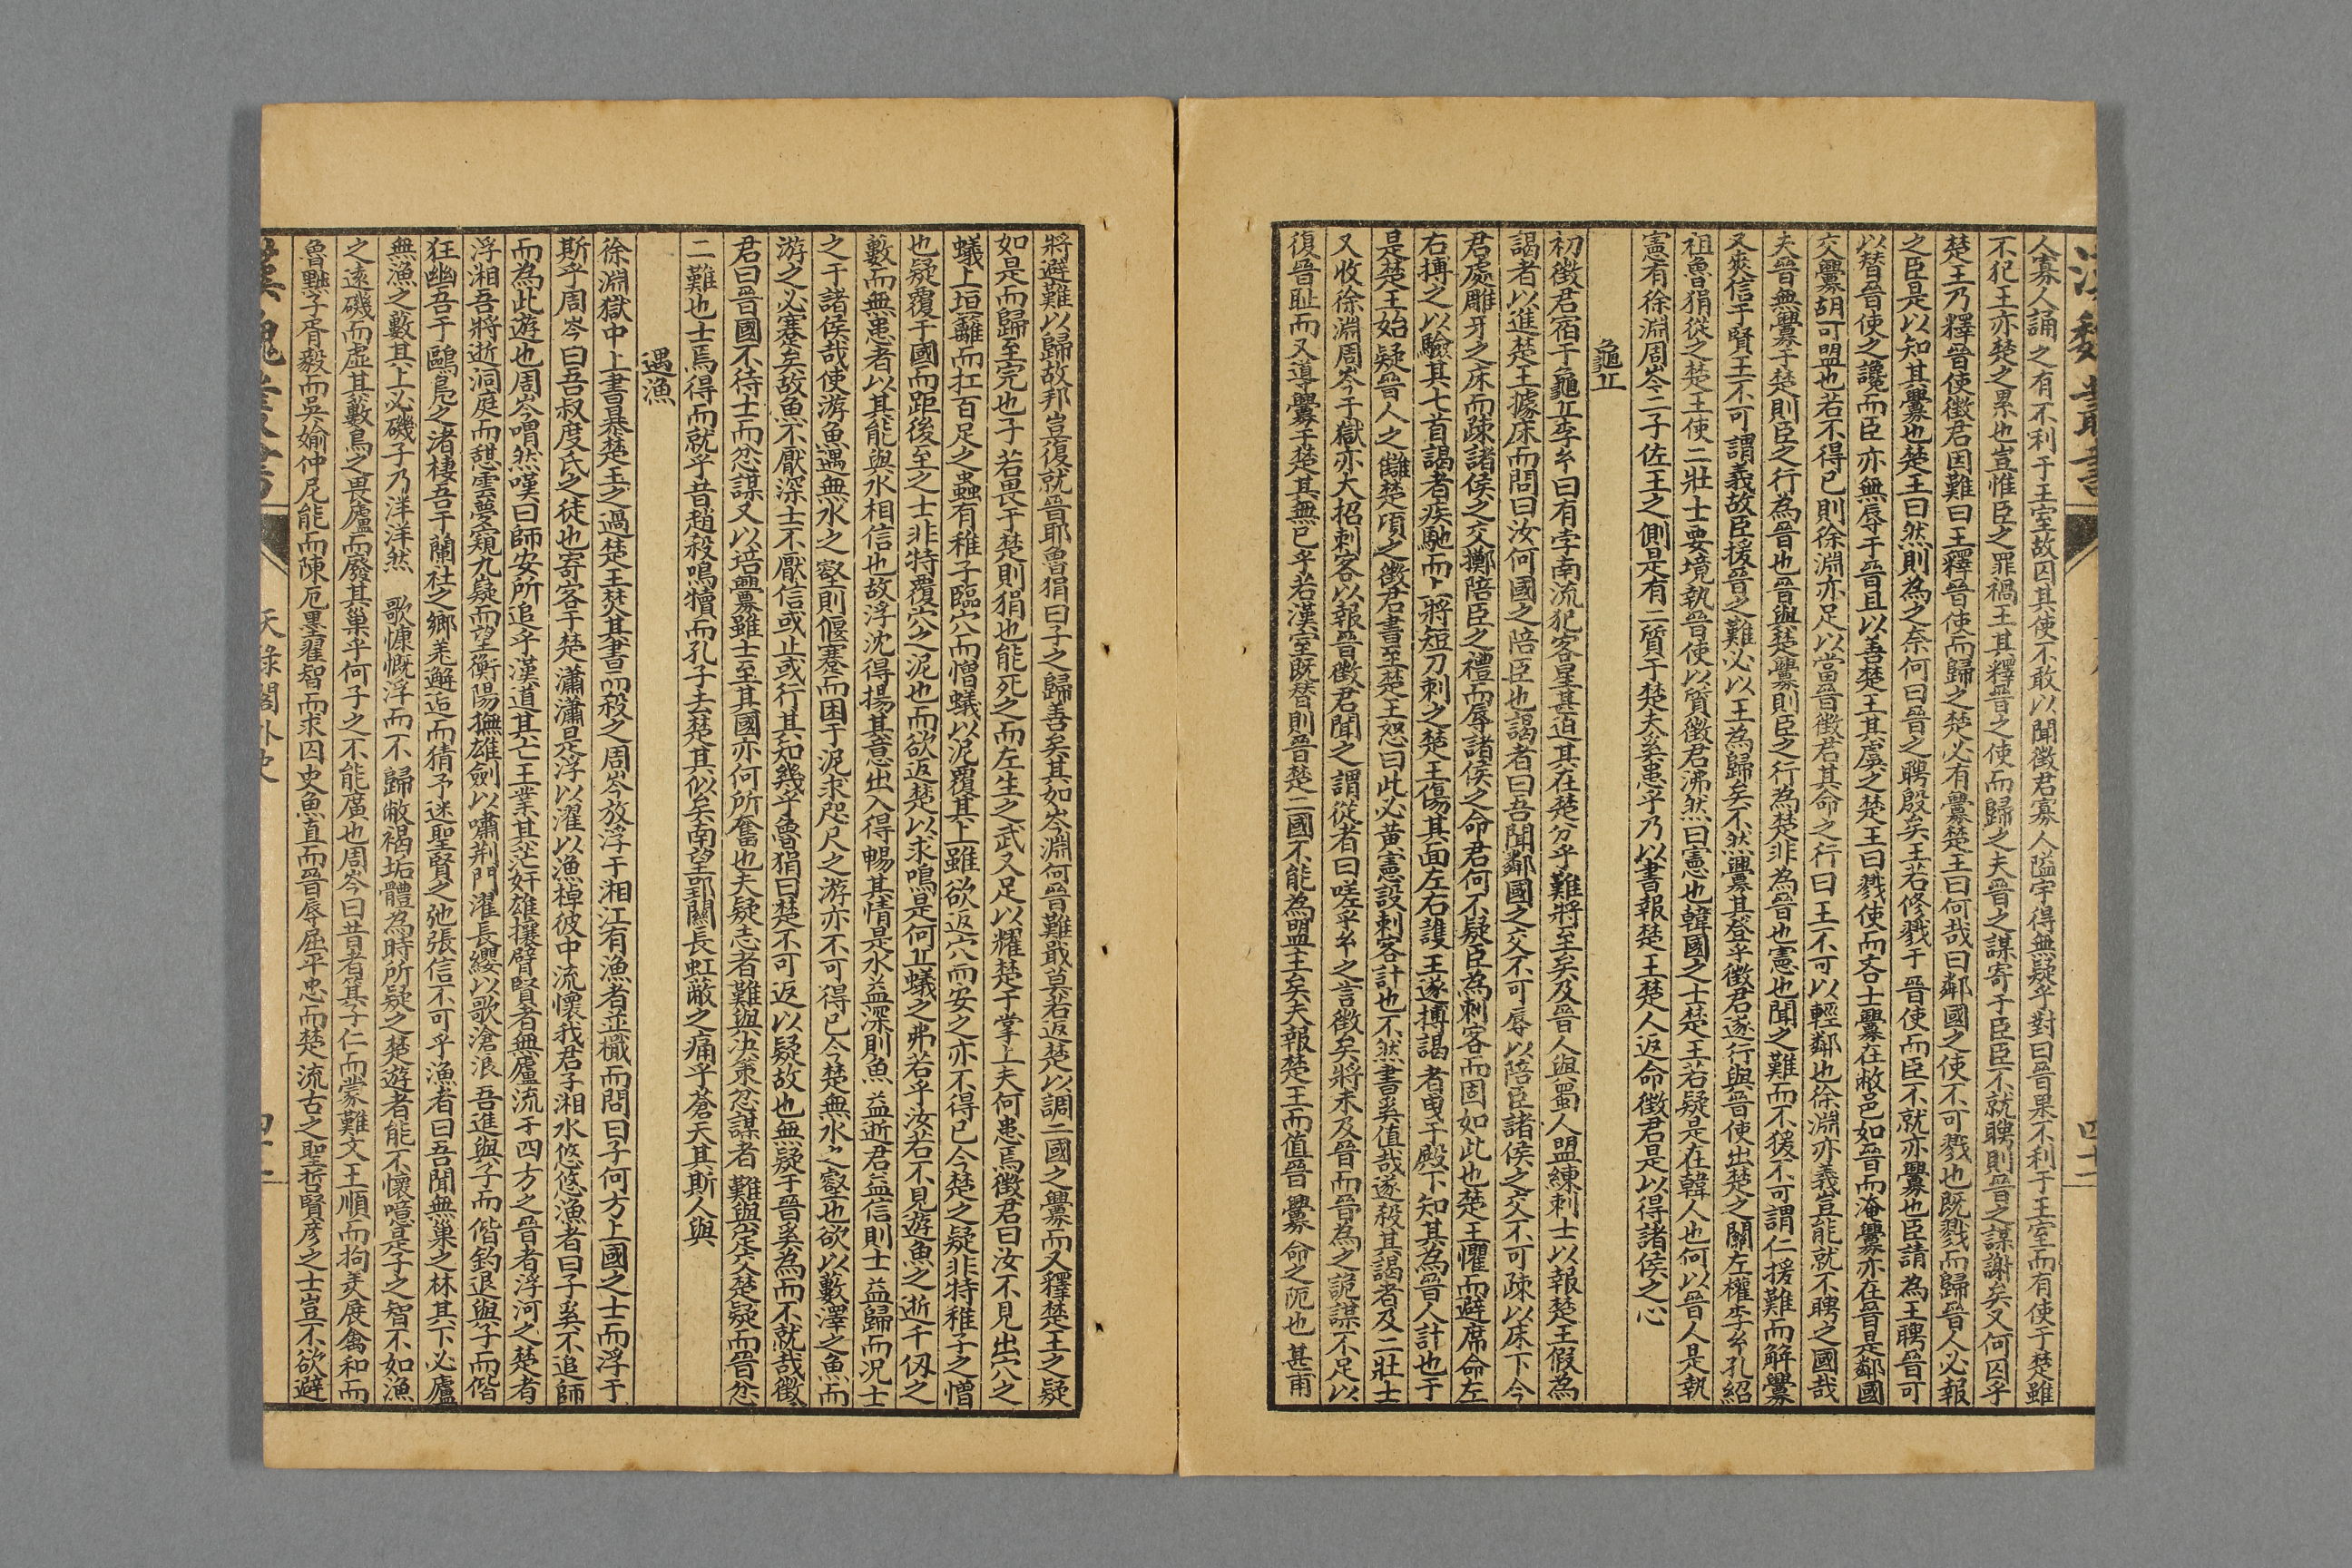 漢魏叢書
四十二
人寡人誦之有不利于王室故囚其使不敢以聞徵君寡人隘宇得無疑乎對曰晉果不利于王室而有使于楚雖
不犯王亦楚之累也豈惟臣之罪禍王其釋晉之使而歸之夫晉之謀寄于臣臣不就聘則晉之謀謝矣又何囚乎
楚王乃釋晉使徵君因難曰王釋晉使而歸之楚必有釁楚王曰何哉曰鄰國之使不可戮也既戮而歸晉人必報
之臣是以知其釁也楚王曰然則為之奈何曰晉之聘殷矣王若修戮于晉使而臣不就亦釁也臣請為王聘晉可
以替晉使之讒而臣亦無辱于晉且以善楚王其虞之楚王曰戮使而吝士釁在敝邑如晉而淹釁亦在晉是鄰國
交釁胡可盟也若不得已則徐淵亦足以當晉徵君其命之行曰王不可以輕鄰也徐淵亦義豈能就不聘之國哉
夫晉無釁于楚則臣之行為晉也晉與楚釁則臣之行為楚非為晉也憲也聞之難而不援不可謂仁援難而解釁
又夾信于賢王不可謂義故臣援晉之難必以王為歸矣不然釁其登乎徵君遂行與晉使出楚之關左權李幺孔紹
祖魯狷從之楚王使二壯士要境執晉使以質徵君沸然曰憲也韓國之士楚王若疑是在韓人也何以晉人是執
憲有徐淵周岑二子佐王之側是有二質于楚夫奚患乎乃以書報楚王楚人返命徵君是以得諸侯之心
龜丘
初徵君宿于龜丘李幺曰有孛南流犯客星甚迫其在楚分乎難將至矣及晉人與蜀人盟練刺士以報楚王假為
謁者以進楚王據床而問曰汝何國之陪臣也謁者曰吾聞鄰國之交不可辱以陪臣諸侯之交不可疎以床下今
君處雕牙之床而疎諸侯之交擲陪臣之禮而辱諸侯之命君何不疑臣為刺客而固如此也楚王懼而避席命左
右搏之以驗其匕首謁者疾馳而上將短刀刺之楚王傷其面左右護王遂搏謁者曳于殿下知其為晉人計也于
是楚王始疑晉人之讎楚項之徵君書至楚王怒曰此必黃憲設刺客計也不然書奚值哉遂殺其謁者及二壯士
又收徐淵周岑于獄亦大招刺客以報晉徵君聞之謂從者曰嗟乎幺之言徵矣將未及晉而晉為之詭謀不足以
復晉耻而又導釁于楚其無已乎若漢室既替則晉楚二國不能為盟主矣夫報楚王而值晉釁命之阨也甚甫
將避難以歸故邦豈復就晉耶魯狷曰子之歸善矣其如岑淵何晉難戢莫若返楚以調二國之釁而又釋楚王之疑
如是而歸至完也子若畏于楚則狷也能死之而左生之武又足以耀楚于掌上夫何患焉徵君曰汝不見出穴之
蟻上垣籬而扛百足之蟲有稚子臨穴而憎蟻以泥覆其上雖欲返穴而安之亦不得已今楚之疑非特稚子之憎
也疑覆于國而距後至之士非特覆穴之泥也而欲返楚以求鳴是何丘蟻之弗若乎汝若不見遊魚之逝千仭之
藪而無患者以其能與水相信也故浮沈得揚其意出入得暢其情是水益深則魚益逝君益信則士益歸而況士
之于諸侯哉使游魚遇無水之壑則偃蹇而困于泥求咫尺之游亦不可得已今楚無水之壑也欲以藪澤之魚而
游之必蹇矣故魚不厭深士不厭信或止或行其知幾乎魯狷曰楚不可返以疑故也無疑于晉奚為而不就哉徵
君曰晉國不待士而忿謀又以培釁雖士至其國亦何所奮也夫疑志者難與決策忿謀者難與定交楚疑而晉忿
二難也士焉得而就乎昔趙殺鳴犢而孔子去楚其似矣南望郢關長虹蔽之痛乎蒼天其斯人與
遇漁
徐淵獄中上書暴楚王之過楚王焚其書而殺之周岑放浮于湘江有漁者並檝而問曰子何方上國之士而浮于
斯乎周岑曰吾叔度氏之徒也寄客于楚瀟瀟是浮以濯以漁棹彼中流懷我君子湘水悠悠漁者曰子奚不追師
而為此遊也周岑喟然嘆曰師安所追乎漢道其亡王業其茫奸雄攘臂賢者無廬流于四方之晉者浮河之楚者
浮湘吾將逝洞庭而憩雲夢窺九嶷而望衡陽撫雄劍以嘯荆門濯長纓以歌滄浪吾進與子而偕釣退與子而偕
狂幽吾于鷗鳧之渚棲吾于蘭杜之鄉羌邂逅而猜予迷聖賢之弛張信不可乎漁者曰吾聞無巢之林其下必廬
無漁之藪其上必磯子乃洋洋然　歌慷慨浮而不歸敝褐垢體為時所疑之楚遊者能不懷噫是子之智不如漁
之遠磯而虛其藪鳥之畏廬而廢其巢乎何子之不能廣也周岑曰昔者箕子仁而蒙難文王順而拘羑展禽和而
魯黜子胥毅而吳婾仲尼能而陳厄墨翟智而求囚史魚直而晉辱屈平忠而楚流古之聖哲賢彥之士豈不欲避
漢魏叢書
天祿閣外史
四十二